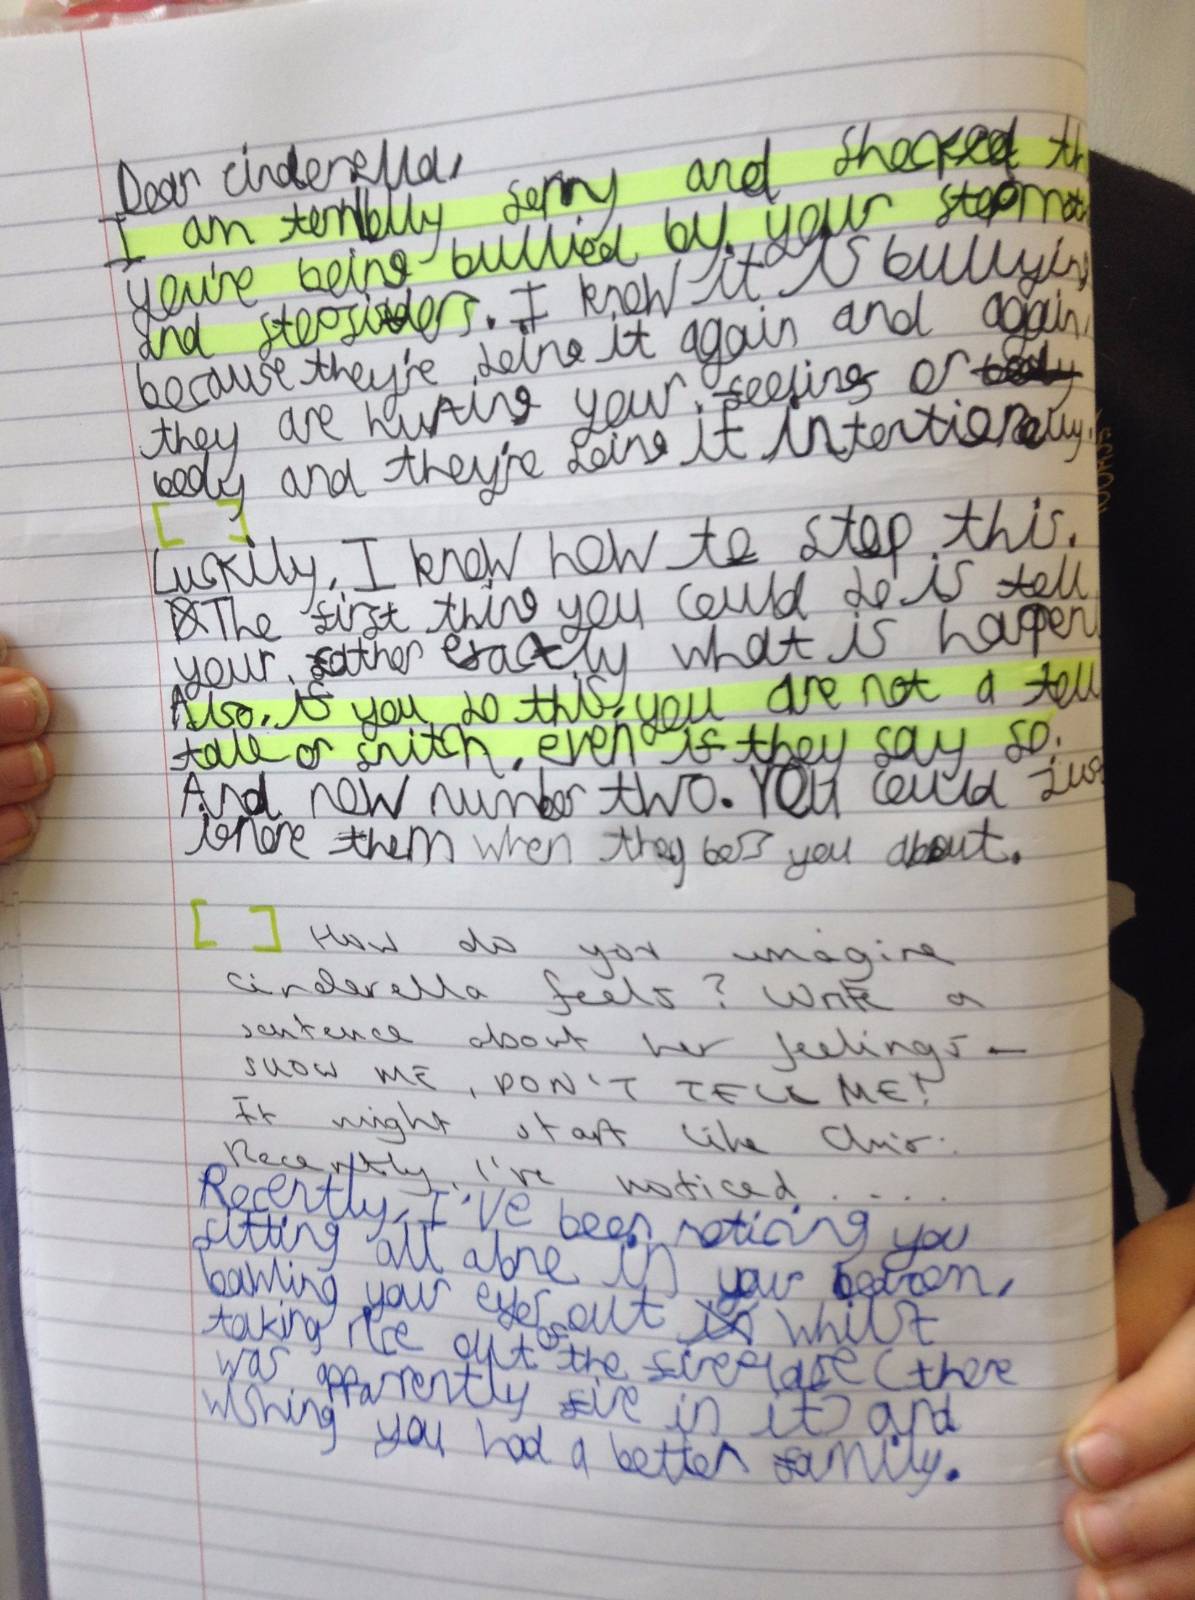 Dear cinderella,
I am terribly sorry and shocked th
you're being bullied by your stepmot
and stepsisters. I know it is bullying
because they're doing it again and again,
they are hurting your feelings or
body and they're doing it intentionally.
[ ]
Luckily, I know how to stop this.
The first thing you could do is tell
your father exactly what is happen
Also, if you do this, you are not a tell
tale or snitch, even if they say so.
And now number two. You could jus
ignore them when they boss you about.
[ ] How do you imagine
cinderella feels? Write a
sentence about her feelings –
SHOW ME, DON'T TELL ME!
It might start like this:
Recently, I've noticed . . . .
Recently, I've been noticing you
sitting all alone in your
bawling your eyes out whilst
taking rice out of the fireplace (there
was apparrently fire in it) and
wishing you had a better family.